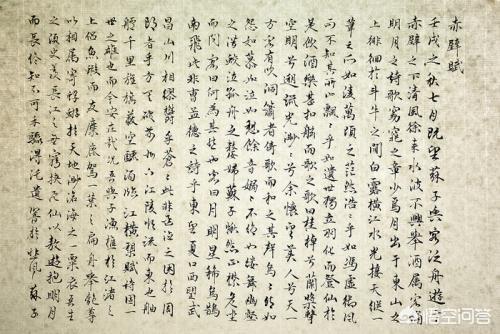 赤壁賦
壬戌之秋七月既望蘇子與客泛舟遊於
赤壁之下清風徐來水波不興舉酒屬客誦
明月之詩歌窈窕之章少焉月出于東山之
上徘徊於斗牛之間白露橫江水光接天縱一
葦之所如凌萬頃之茫然浩浩乎如馮虛御風
而不知其所止飄飄乎如遺世獨立羽化而登仙於
是飲酒樂甚扣舷而歌之歌曰桂棹兮蘭槳擊
空明兮遡流光渺渺兮余懷望美人兮天一
方客有吹洞簫者倚歌而和之其聲嗚嗚然如
怨如慕如泣如訴餘音嫋嫋不絕如縷舞幽壑
之潛蛟泣孤舟之嫠婦蘇子愀然正襟危坐
而問客曰何為其然也客曰月明星稀烏鵲
南飛此非曹孟德之詩乎東望夏口西望武
昌山川相繆鬱乎蒼蒼此非孟德之困於周
郎者乎方其破荊州下江陵順流而東也舳
艫千里旌旗蔽空釃酒臨江橫槊賦詩固一
世之雄也而今安在哉況吾與子漁樵於江渚之
上侶魚蝦而友麋鹿駕一葉之扁舟舉匏尊
以相屬寄蜉蝣於天地渺滄海之一粟哀吾生
之須臾羨長江之無窮挾飛仙以遨遊抱明月
而長終知不可乎驟得托遺響於悲風蘇子
悟空问答